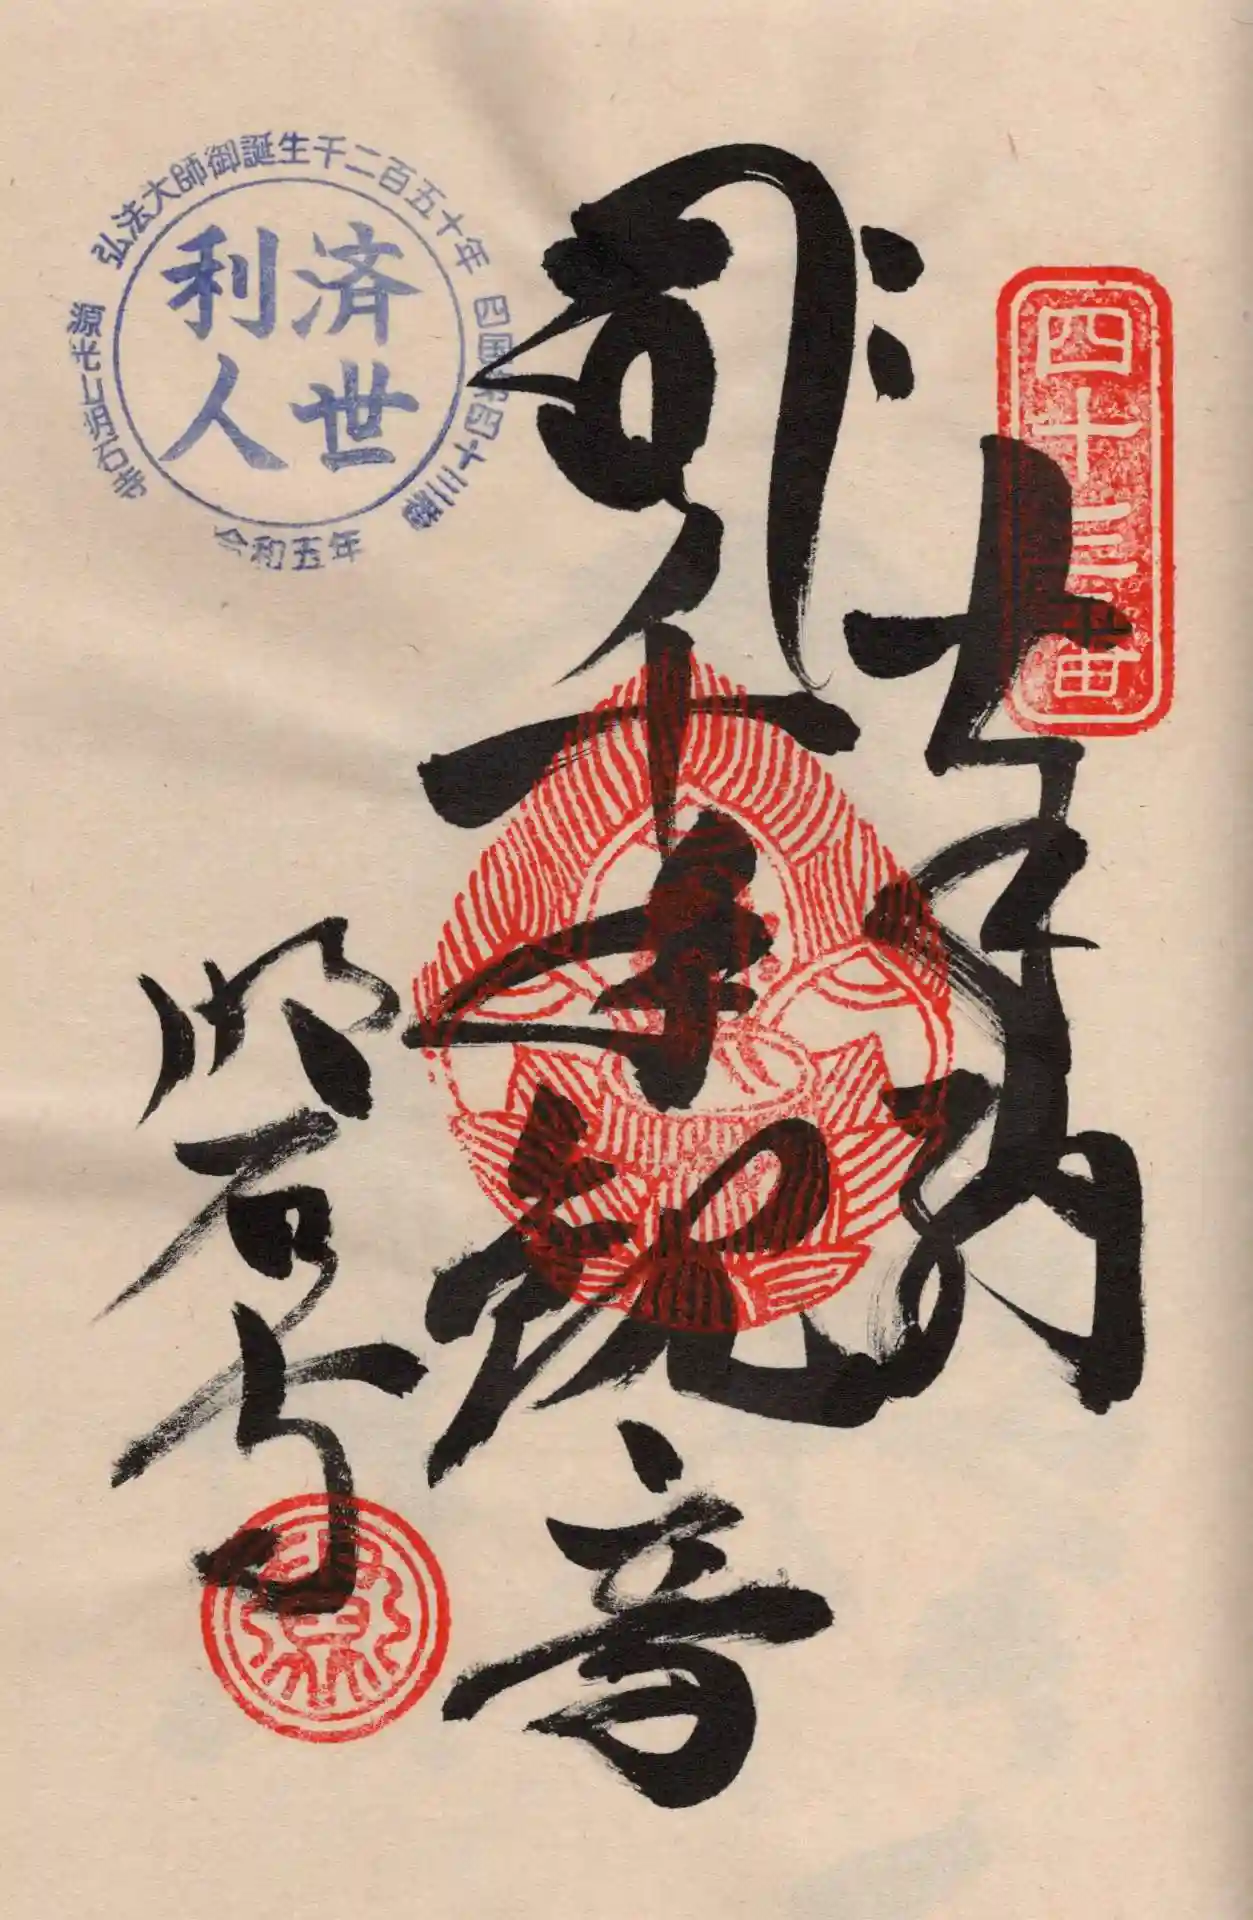 四十三番
奉納
千手観音
明石寺
弘法大師御誕生千二百五十年
四国第四十三番
源光山明石寺
令和五年
済世
利人